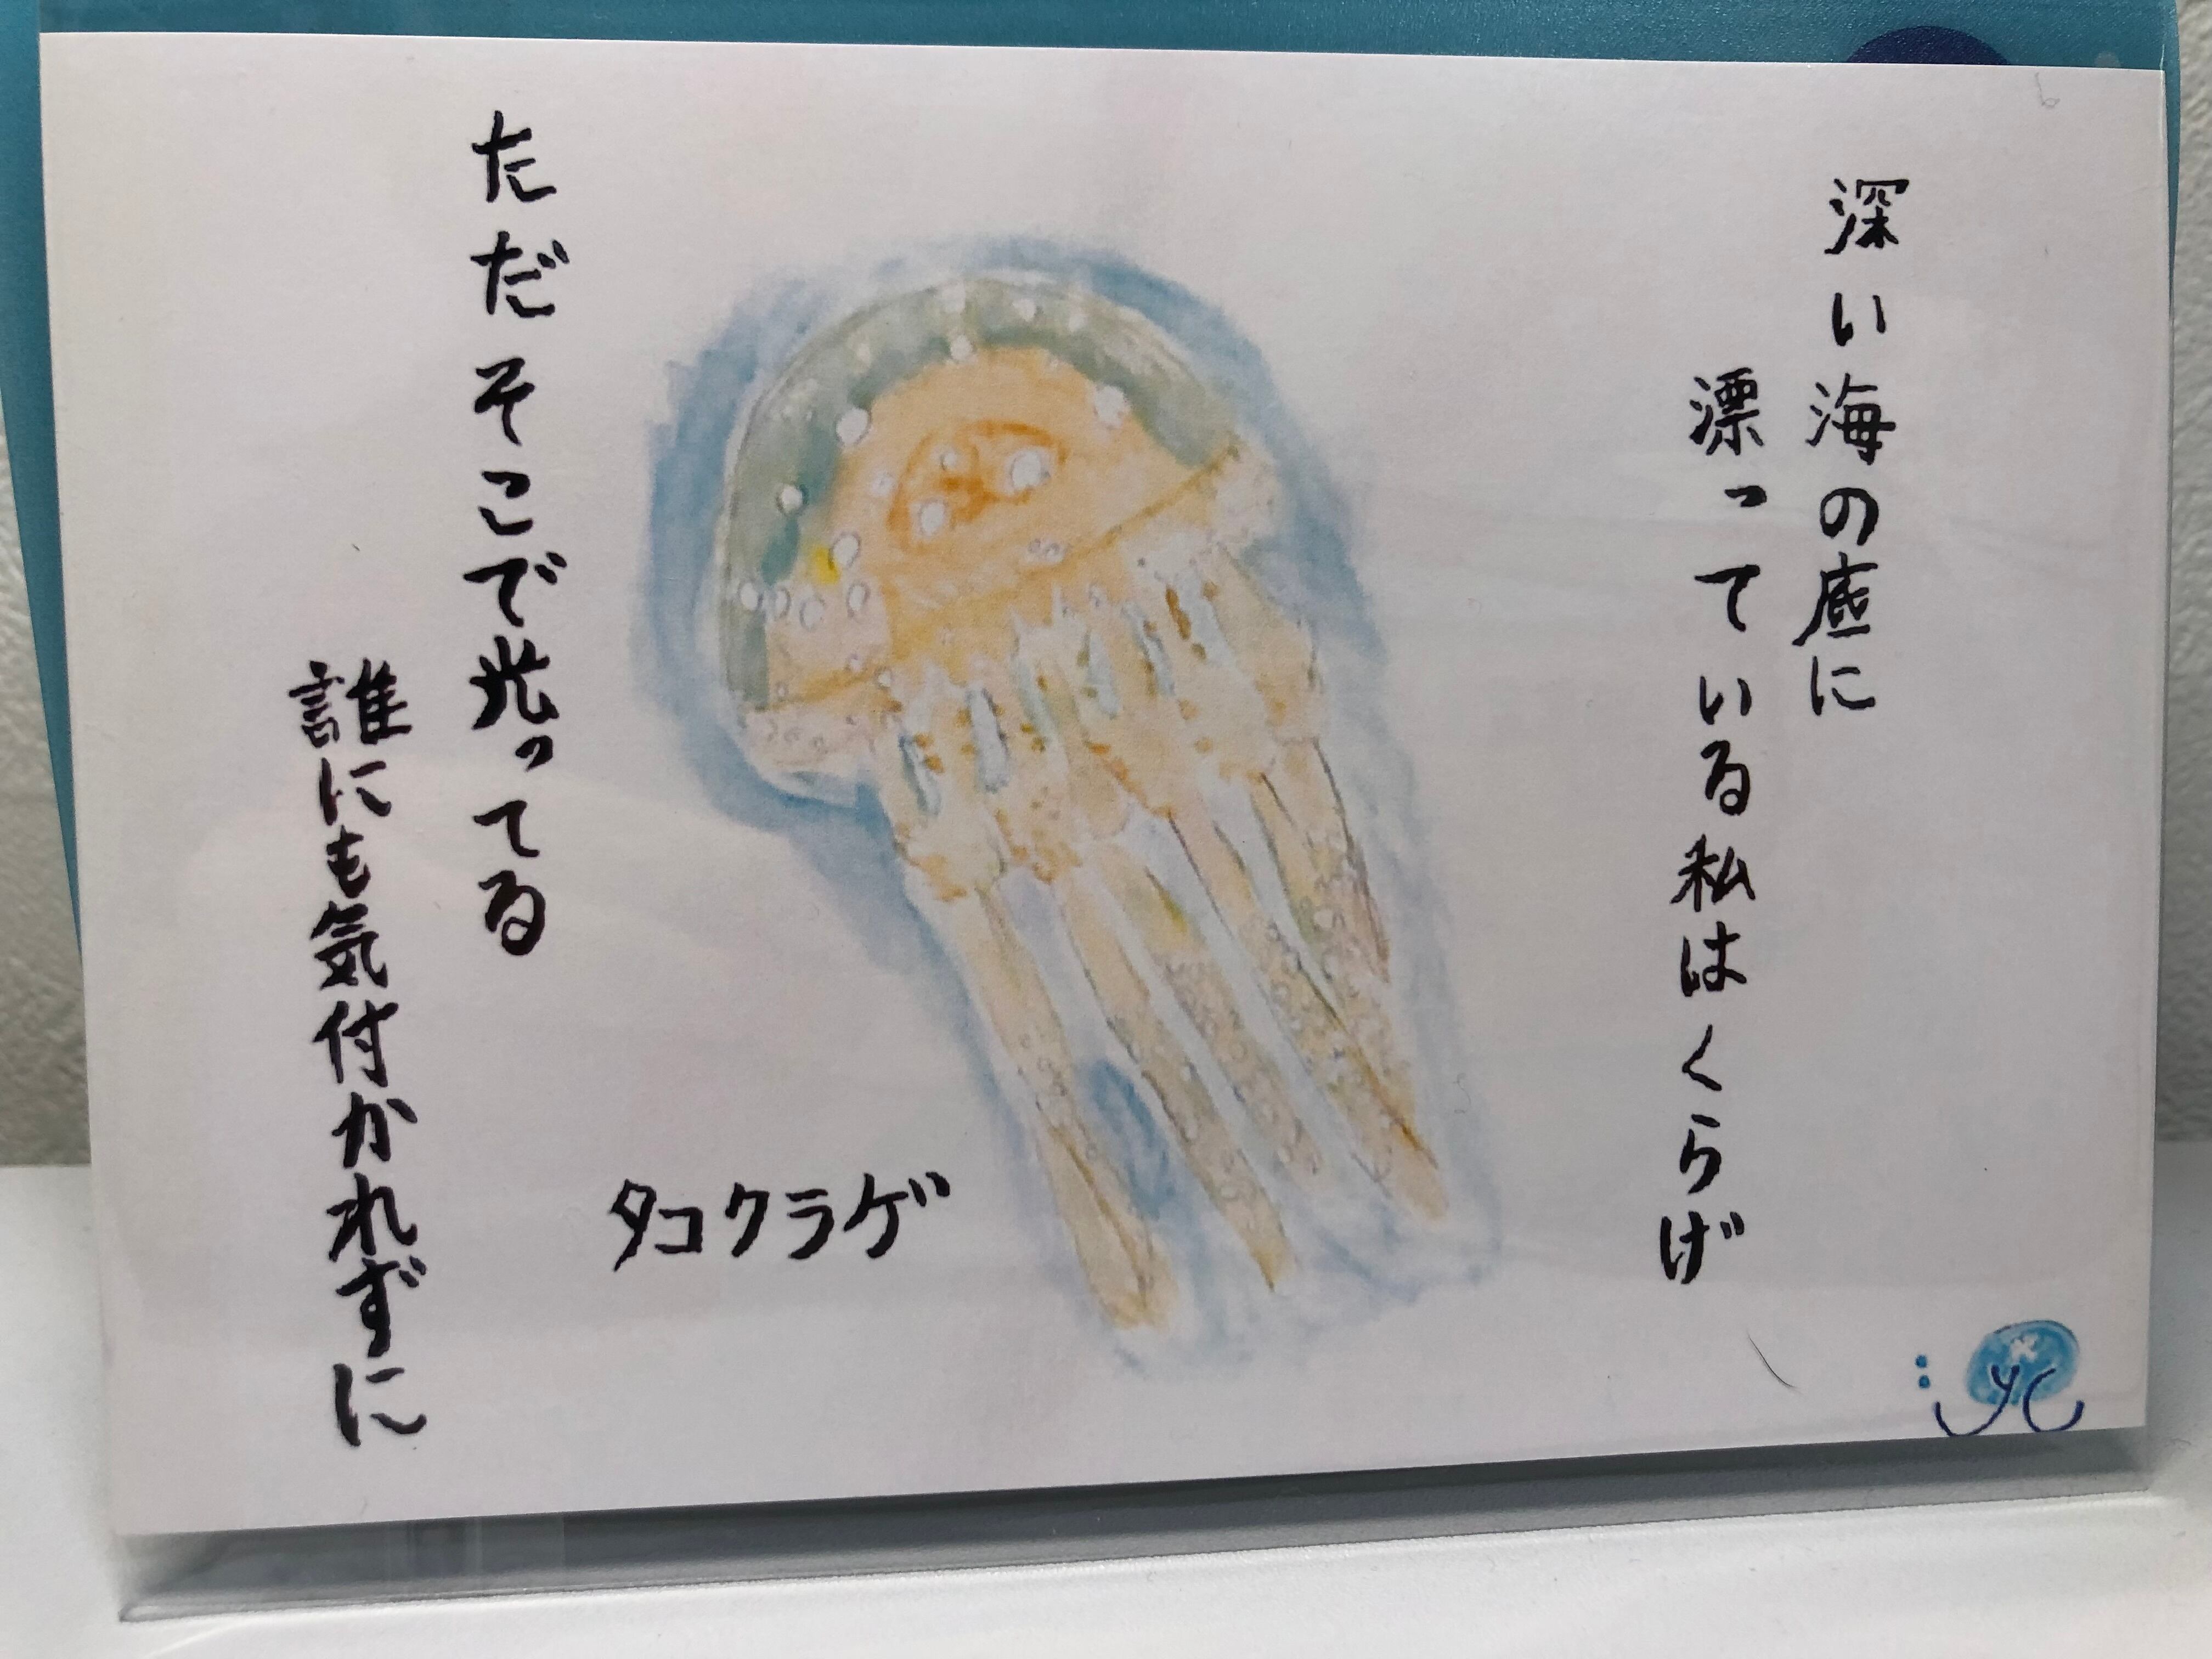 深い海の底に
漂っている私はくらげ
ただそこで光ってる
誰にも気付かれずに
タコクラゲ